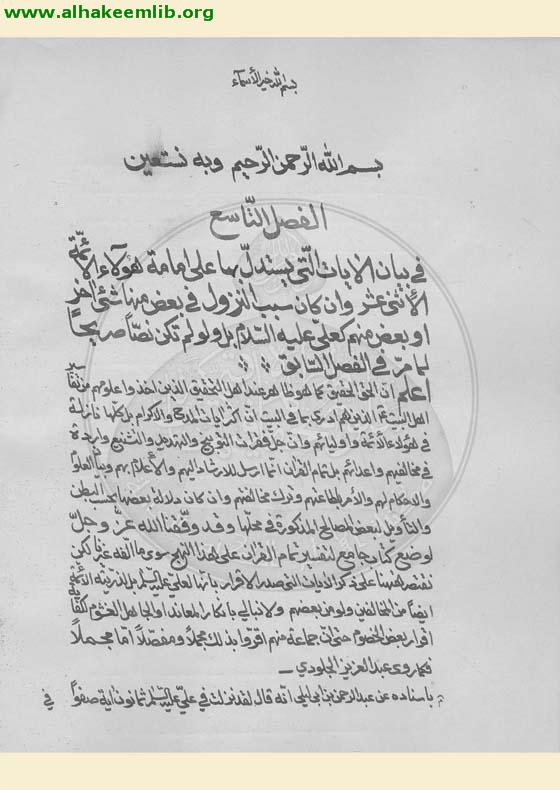 www.alhakeemlib.org
بسم الله خير الأسماء
بسم الله الرّحمن الرّحيم وبه نستعين
الفصل التّاسع
في بيان الآيات الّتي يستدلّ بها على امامة هؤلاء الأئمّة
الأثنى عشر وان كان سبب النزول في بعض منها شئ اخر
او بعض منهم كعليّ عليه السّلام بل ولو لم تكن نصّاً صريحاً
لما مرّ في الفصل السّابق
اعلم انّ الحقّ الحقيق كما هو ظاهر عند اهل التحقيق الذين اخذوا علومهم من تفاسير
اهل البيت الذين هم ادرى بما في البيت انّ اكثر ايات المدح والاكرام بل كلّها نازلة
في هؤلاء الأئمة واوليائهم وانّ جلّ فقرات التوبيخ والتهديد والتشنيع واردة
في مخالفيهم واعدائهم بل تمام القرآن انما ارسل للارشاد اليهم والأعلام بهم وبيان العلوم
والاحكام لهم والأمر باطاعتهم وترك مخالفتهم وان كان دلالة بعضها بحسب البطن
والتأويل لبعض المصالح المذكورة في محلّها وقد وفّقنا الله عزّ وجلّ
لوضع كتاب جامع لتفسير تمام القرآن على هذا النهج سوى ما الّفه غيرنا لكن
نقتصر هيهنا على ذكر الآيات التي صدر الاقرار بانها لعلي عليه السلم بل لذريّته الائمّة
ايضاً من المخالفين ولو من بعضهم ولا نبالي بانكار المعاند او الجاهل
اقرار بعض الخصوم حتى انّ جماعة منهم اقرّوا بذلك مجملاً ومفصّلاً امّا مجملاً
فكما روى عبد العزيز الجلودي
باسناده عن عبد الرحمن بن ابي ليلى انه قال لقد نزلت في عليّ عليه السلم ثمانون آية صفواً في